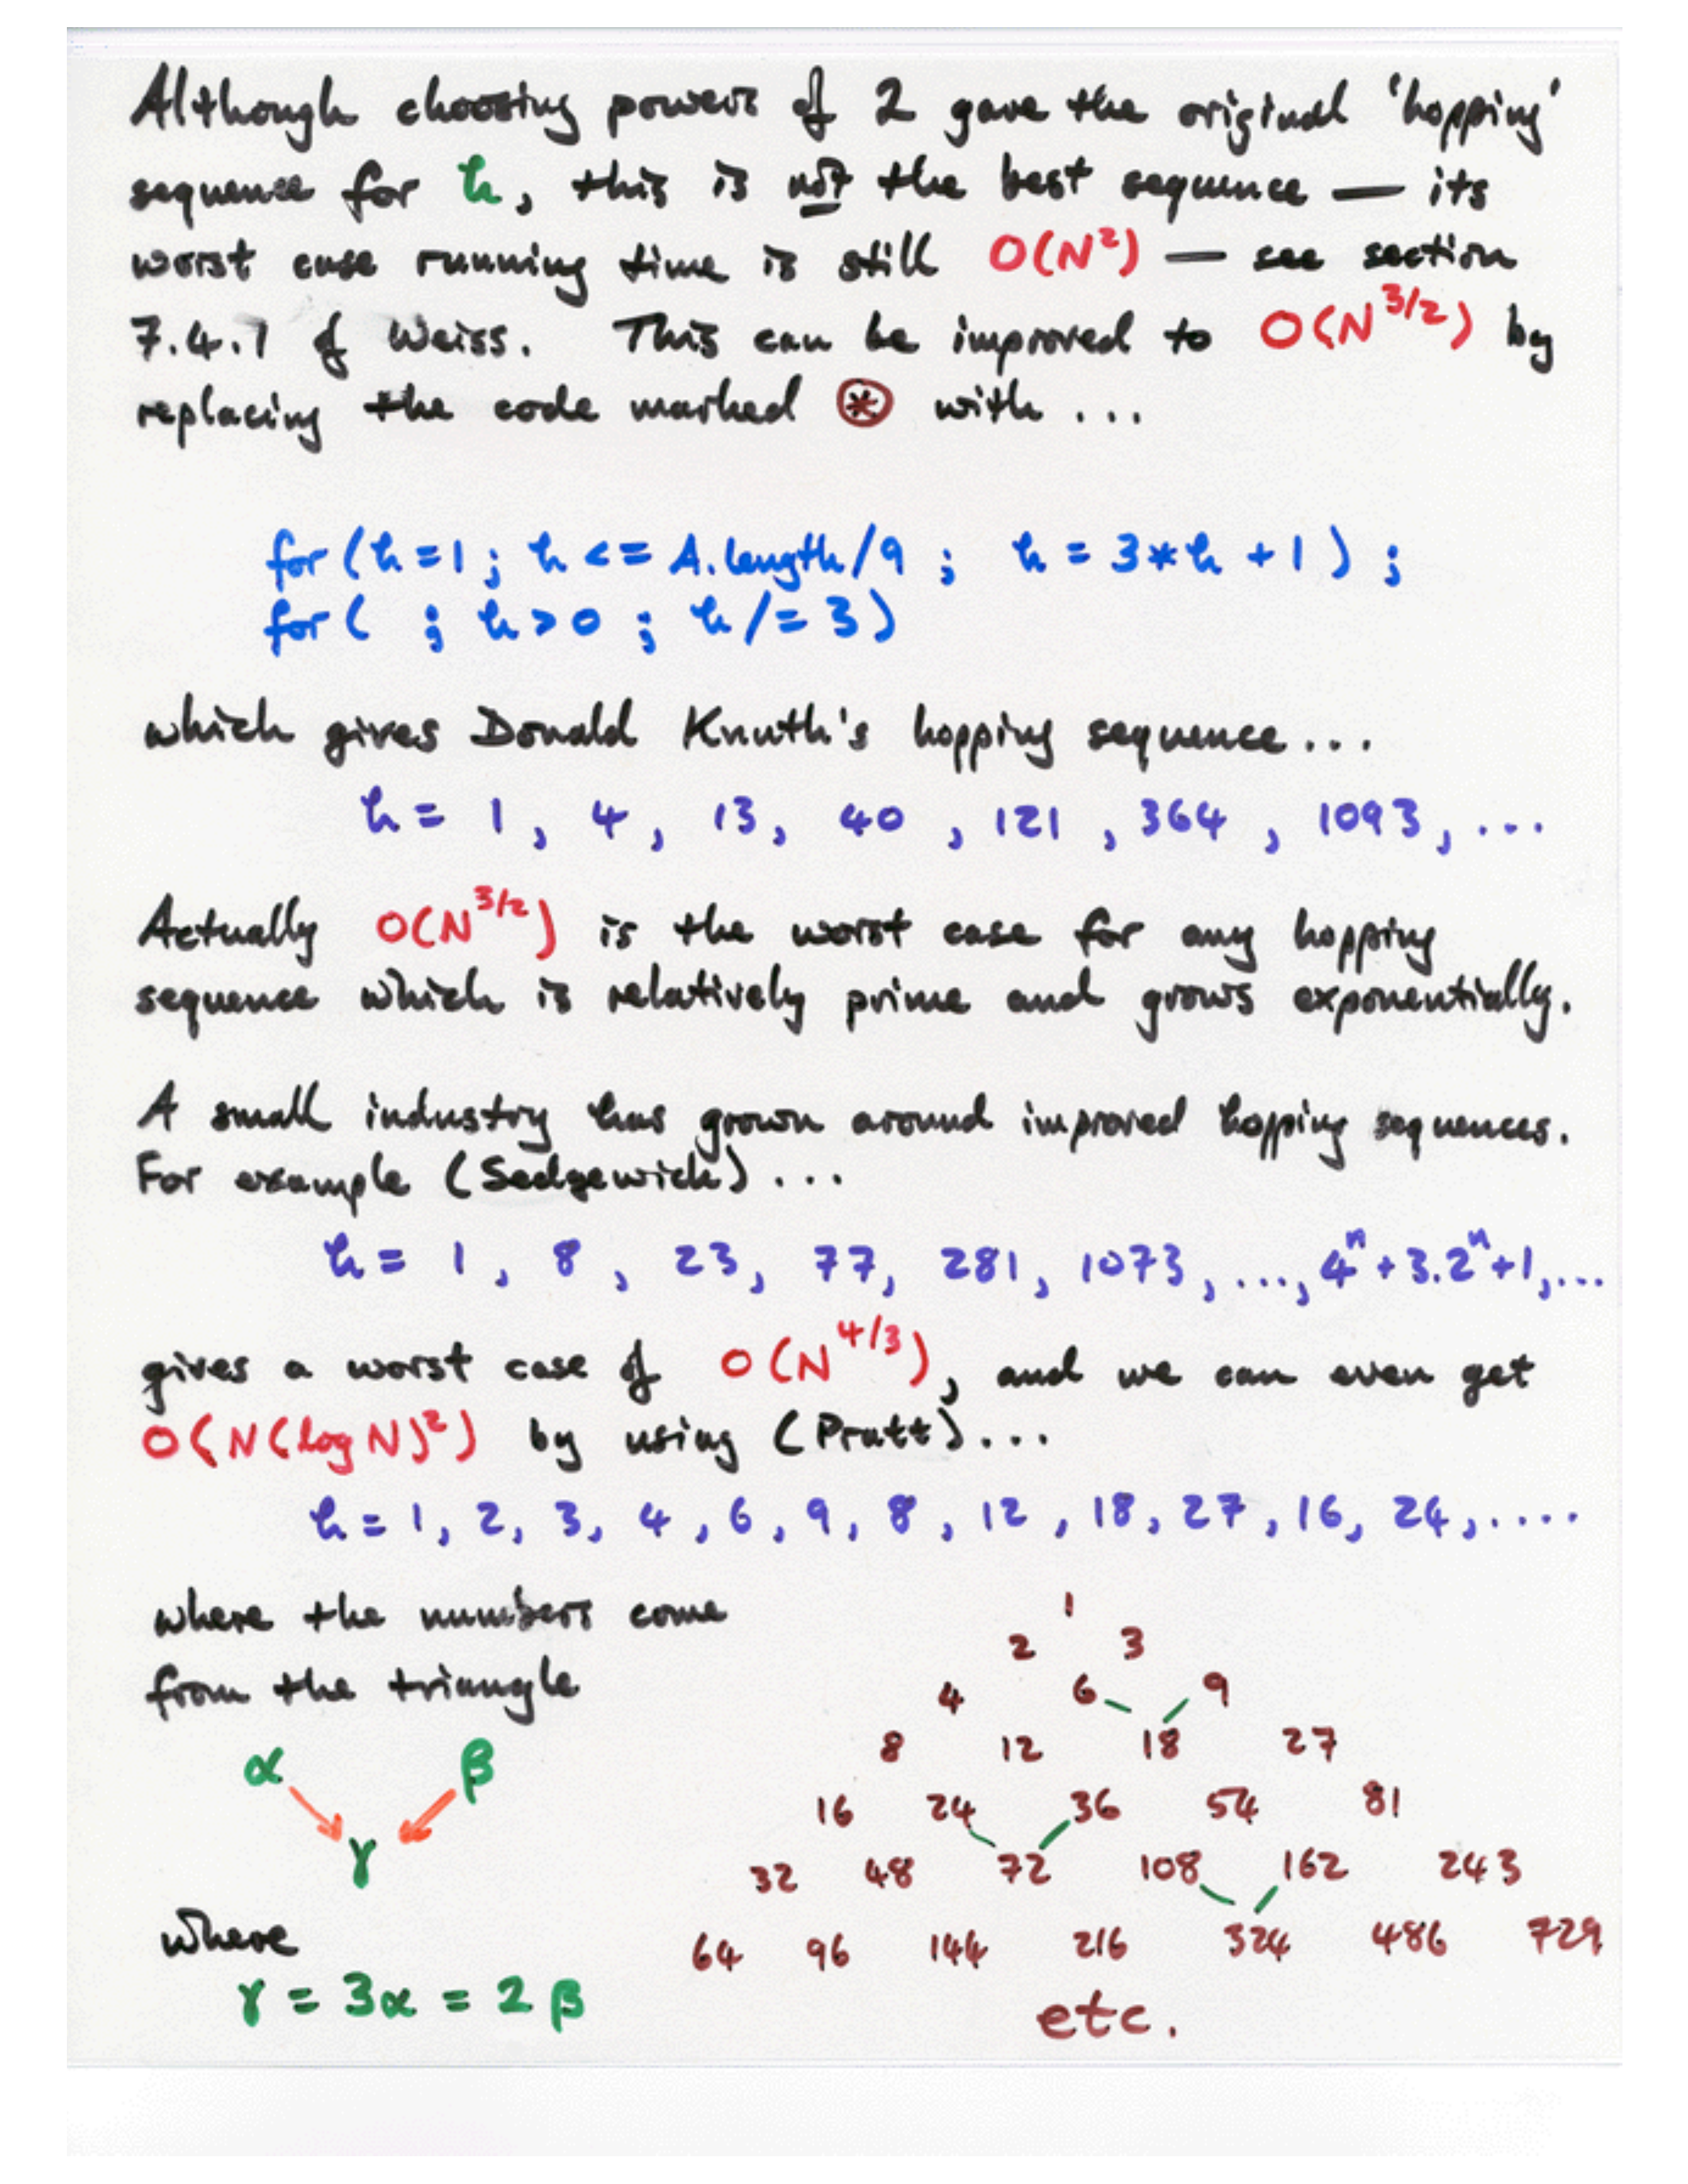 Although choosing powers of 2 gave the original 'hopping'
sequence for h, this is not the best sequence — its
worst case running time is still O(N²) — see section
7.4.1 of Weiss. This can be improved to O(N^3/2) by
replacing the code marked ⊛ with ...
for (h=1; h <= A.length/9 ; h = 3*h +1) ;
for ( ; h>0 ; h/=3)
which gives Donald Knuth's hopping sequence...
h = 1, 4, 13, 40, 121, 364, 1093, ...
Actually O(N^3/2) is the worst case for any hopping
sequence which is relatively prime and grows exponentially.
A small industry has grown around improved hopping sequences.
For example (Sedgewick) ...
h = 1, 8, 23, 77, 281, 1073, ..., 4^n + 3.2^n + 1, ...
gives a worst case of O(N^4/3), and we can even get
O(N(log N)²) by using (Pratt)...
h = 1, 2, 3, 4, 6, 9, 8, 12, 18, 27, 16, 24, ....
where the numbers come
from the triangle
α β
γ
where
γ = 3α = 2β
1
2 3
4 6 9
8 12 18 27
16 24 36 54 81
32 48 72 108 162 243
64 96 144 216 324 486 729
etc.